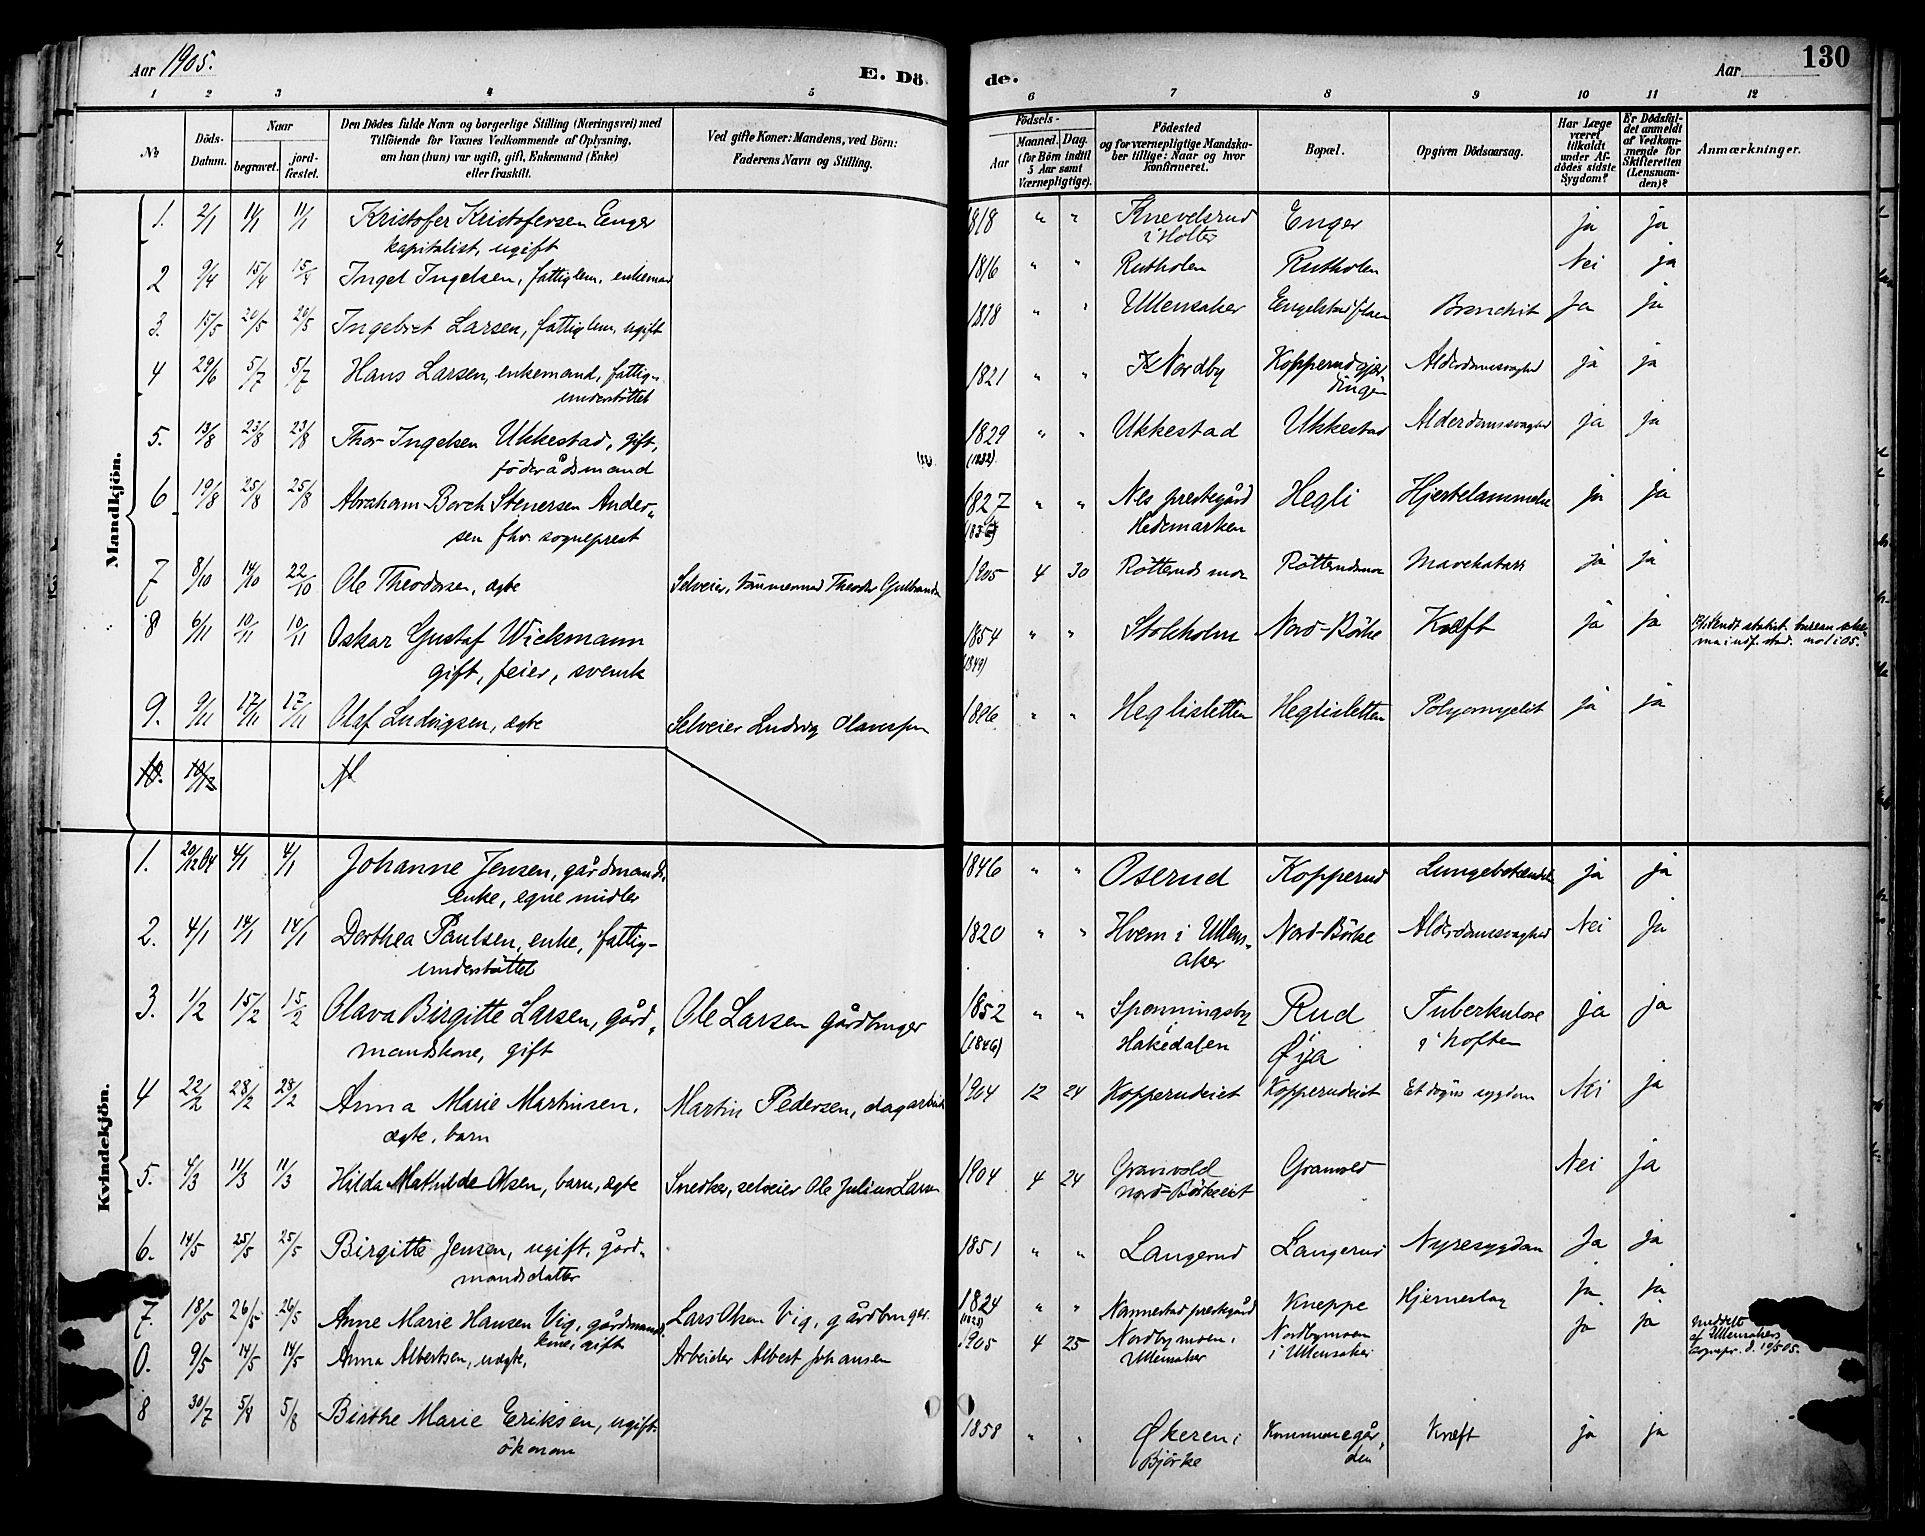 Aar 1905.
E. Dö
de.
Aar
130
1 2 3 4 5 6 7 8 9 10 11 12
№
Döds-Datum.
Naar
begravet.
jord-fæstet.
Den Dödes fulde Navn og borgerlige Stilling (Næringsvei) med
Tilföiende for Voxnes Vedkommende af Oplysning,
om han (hun) var ugift, gift, Enkemand (Enke)
eller fraskilt.
Ved gifte Koner: Mandens, ved Börn:
Faderens Navn og Stilling.
Födsels-
Aar
Maaned. Dag.
(for Börn indtil
5 Aar samt
Værnepligtige).
Födested
og for værnepligtige Mandska-
ber tillige: Naar og hvor
konfirmeret.
Bopæl.
Opgiven Dödsaarsag.
Har Læge
været
tilkaldt
under Af-
dödes sidste
Sygdom?
Er Dödsfal-
det anmeldt
af Vedkom-
mende for
Skifteretten
(Lensman-
den)?
Anmærkninger.
Mandkjön.
1. 2/1 11/1 11/1 Kristofer Kristofersen Enger 1818 " " Knevelsrud Enger ja ja
kapitalist, ugift i Holter
2 9/4 15/4 15/4 Ingel Ingelsen, fattiglem, enkemand 1816 " " Rutholen Rutholen Nei ja
3. 17/5 20/5 20/5 Ingebret Larsen, fattiglem, ugift 1818 " " Ullensaker Engelstad Bronchit Ja ja
4 29/6 5/7 5/7 Hans Larsen, enkemand, fattig- 1821 " " Nordby Kopperudgjær Alderdomssvaghed ja ja
understöttet dingen
5. 13/8 23/8 23/8 Thor Ingelsen Ukkestad, gift, 1829 " " Ukkestad Ukkestad Alderdomssvaghed ja ja
föderådsmand (1832)
6 19/8 25/8 25/8 Abraham Borch Stenersen Ander- 1827 " " Nes prestegård Hegli Hjertelammelse ja ja
sen fhv. sogneprest Hedemarken
7 8/10 14/10 22/10 Ole Theodorsen, ægte Selveier, tömmermand Theodor Gulbrandsen 1905 4 30 Rötterudsmoe Rötterudsmoe Mavekatarr ja ja
8 6/11 10/11 10/11 Oskar Gustaf Wickmann 1854 " " Stokholm Nord-Börke Kræft ja ja
gift, feier, svensk (1849)
9. 9/11 17/11 17/11 Olaf Ludvigsen, ægte Selveier Ludvig Olaussen 1896 " " Heglisletten Heglisletten Polyomyelit ja ja
10. 10/12
Kvindekjön.
1. 20/12 04 4/1 4/1 Johanne Jensen, gårdmands- 1846 " " Oserud Kopperud Lungebetændelse ja ja
enke, egne midler
2. 4/1 14/1 14/1 Dorthea Paulsen, enke, fattig- 1820 " " Hvem i Ullens- Nord-Börke Alderdomssvaghed Nei Ja
understöttet aker
3. 1/2 15/2 15/2 Olava Birgitte Larsen, gård- Ole Larsen gårdbruger 1852 " " Spenningsby Rud Tuberkulose ja ja
mandskone, gift (1846) Hakedalen Øya i hoften
4 22/2 28/2 28/2 Anna Marie Martinsen, Martin Pedersen, dagarbeid 1904 12 24 Kopperudeiet Kopperudeiet Et døgns sygdom Nei ja
ægte, barn
5. 4/3 11/3 11/3 Hilda Mathilde Olsen, barn, ægte Snedker, selveier Ole Julius Larsen 1904 4 24 Granvold Granvold Nei ja
Nord-Börkeeiet
6. 14/5 25/5 25/5 Birgitte Jensen, ugift, gård- 1851 " " Langerud Langerud Nyresygdom Ja ja
mandsdatter
7. 18/5 26/5 26/5 Anne Marie Hansen Vig, gårdmands- Lars Olsen Vig, gårdbruger 1824 " " Nannestad prestegård Kneppe Hjerneslag Ja ja
kone, gift
0. 9/5 14/5 14/5 Anna Albertsen, uægte, Arbeider Albert Johansen 1905 4 25 Nordbymoen i Nordbymoen ja ja Meddelt
Ullensaker i Ullensaker af Ullensakers
sognepr. d. 19/5 05.
8 30/7 5/8 5/8 Birthe Marie Eriksen, ugift 1858 " " Økeren i Kommunegår- Kræft ja ja
ökonom Bjørke den